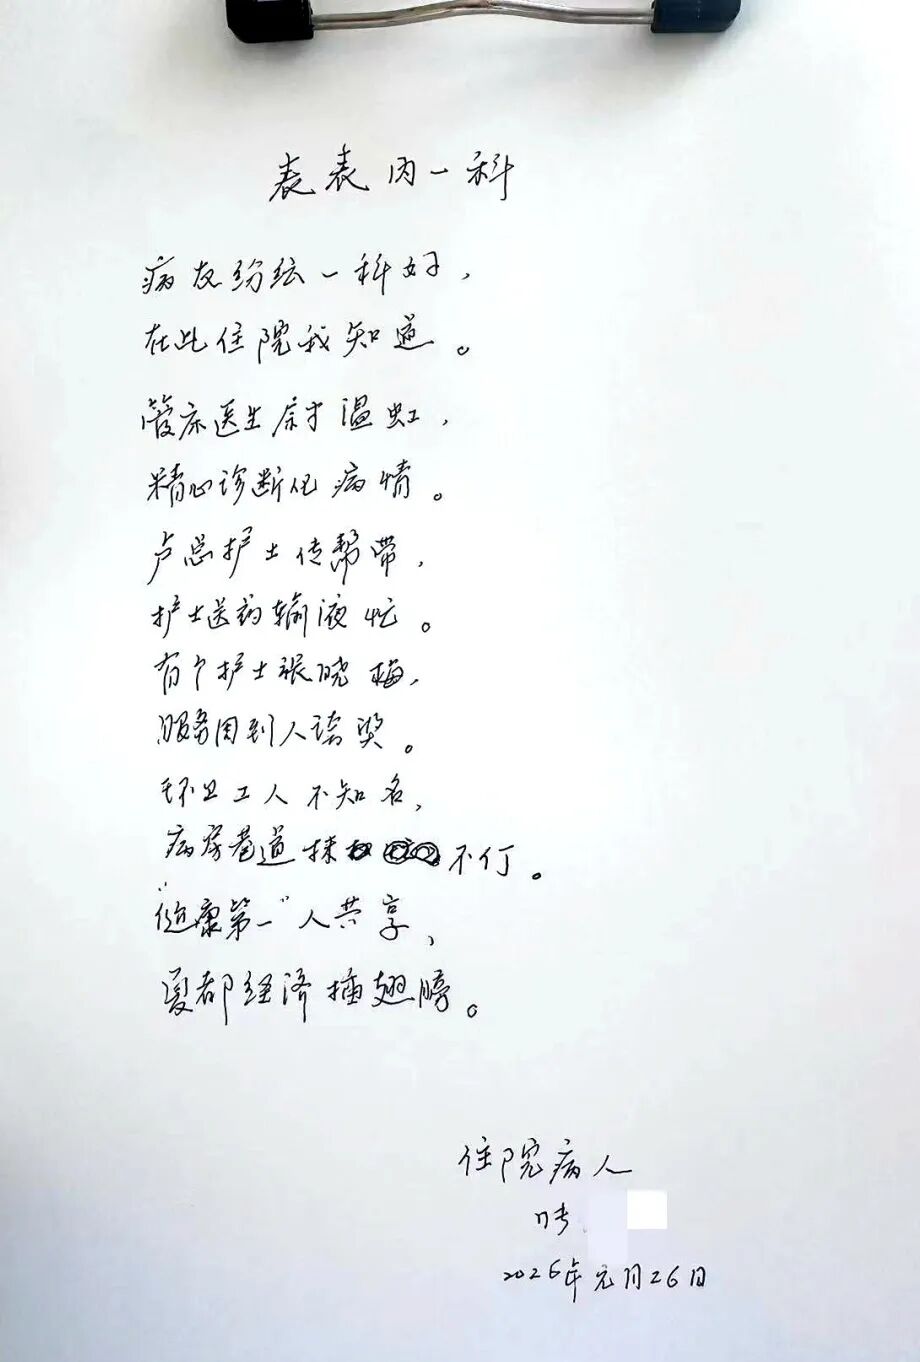 表表内一科
病友纷纭一科好，
在此住院我知道。
管床医生尉温虹，
精心诊断化病情。
卢总护士传帮带，
护士送药输液忙。
有个护士张晓梅，
服务周到人读奖。
环卫工人不知名，
病房巷道抹不停。
"健康第一"人共享，
夏都经济插翅膀。
住院病人
2026年元月26日